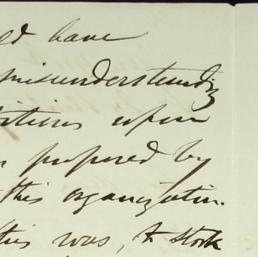 have
misunderstanding
upon
proposed by
this organization.
this was, to stock